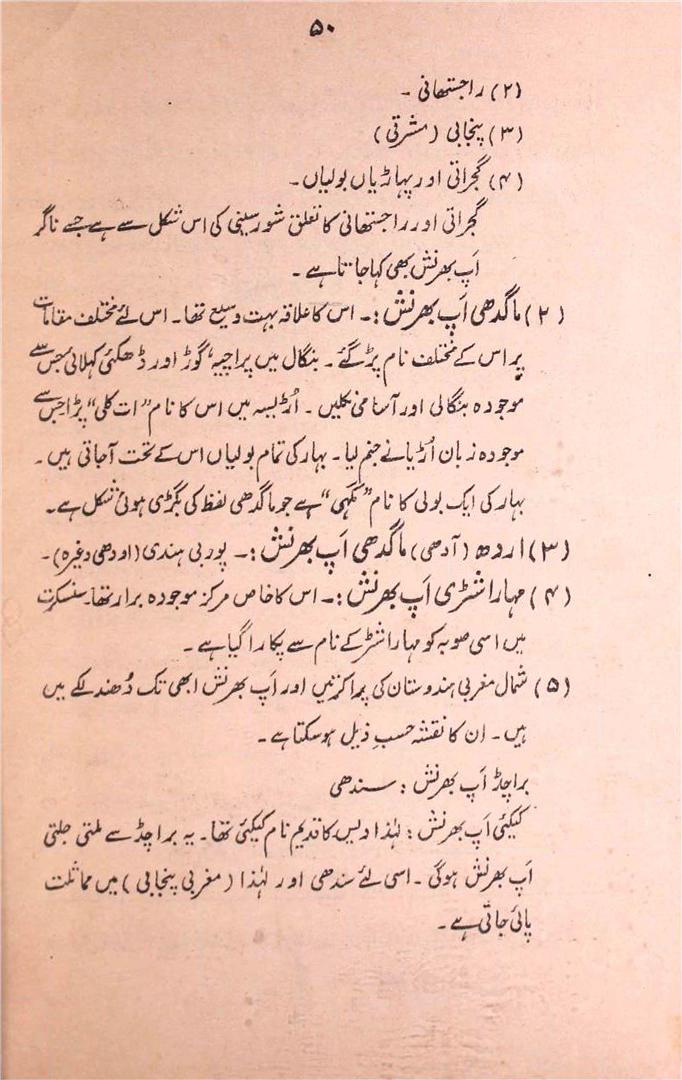 ۵۰
(۲) راجستھانی ۔
(۳) پنجابی (مشرقی)
(۴) گجراتی اور پہاڑیاں بولیاں ۔
گجراتی اور راجستھانی کا تعلق شورسینی کی اس شکل سے ہے جسے ناگر
اَپ بھرنش بھی کہا جاتا ہے ۔
(۲) ماگدھی اَپ بھرنش :۔ اس کا علاقہ بہت وسیع تھا ۔ اس لئے مختلف مقامات
پر اس کے مختلف نام پڑ گئے ۔ بنگال میں پراچیہ، گوڑ اور ڈھکئی کہلائی جس سے
موجودہ بنگالی اور آسامی نکلیں ۔ اُڑیسہ میں اس کا نام ”ات کلی“ پڑا جس سے
موجودہ زبان اُڑیا نے جنم لیا ۔ بہار کی تمام بولیاں اس کے تحت آجاتی ہیں ۔
بہار کی ایک بولی کا نام ”مگہی“ ہے جو ماگدھی لفظ کی بگڑی ہوئی شکل ہے ۔
(۳) اردھ (آدھی) ماگدھی اَپ بھرنش :۔ پوربی ہندی (اودھی وغیرہ) ۔
(۴) مہاراشٹری اَپ بھرنش :۔ اس کا خاص مرکز موجودہ برار تھا ۔ سنسکرت
میں اسی صوبہ کو مہاراشٹر کے نام سے پکارا گیا ہے ۔
(۵) شمال مغربی ہندوستان کی پراکرتیں اور اَپ بھرنش ابھی تک دُھندلکے میں
ہیں ۔ ان کا نقشہ حسبِ ذیل ہو سکتا ہے ۔
براچڈ اَپ بھرنش : سندھی
کیکئی اَپ بھرنش : لہٰذا دیس کا قدیم نام کیکئی تھا ۔ یہ براچڈ سے ملتی جلتی
اَپ بھرنش ہوگی ۔ اسی لئے سندھی اور لہٰذا (مغربی پنجابی) میں مماثلت
پائی جاتی ہے ۔